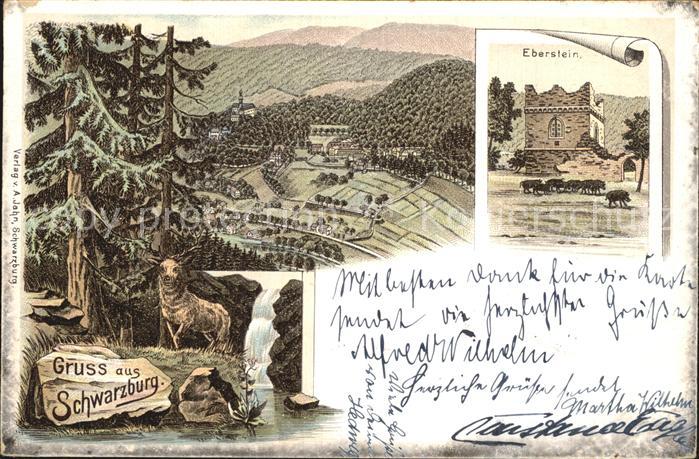 Eberstein.
Verlag v. A. Jahn, Schwarzburg
Gruss aus
Schwarzburg.
Mit besten Dank für die Karte
sendet die herzlichsten Grüße
Alfred Wilhelm
Herzliche Grüße sendet
Martha Wilhelm
Viele Grüße
von Deiner